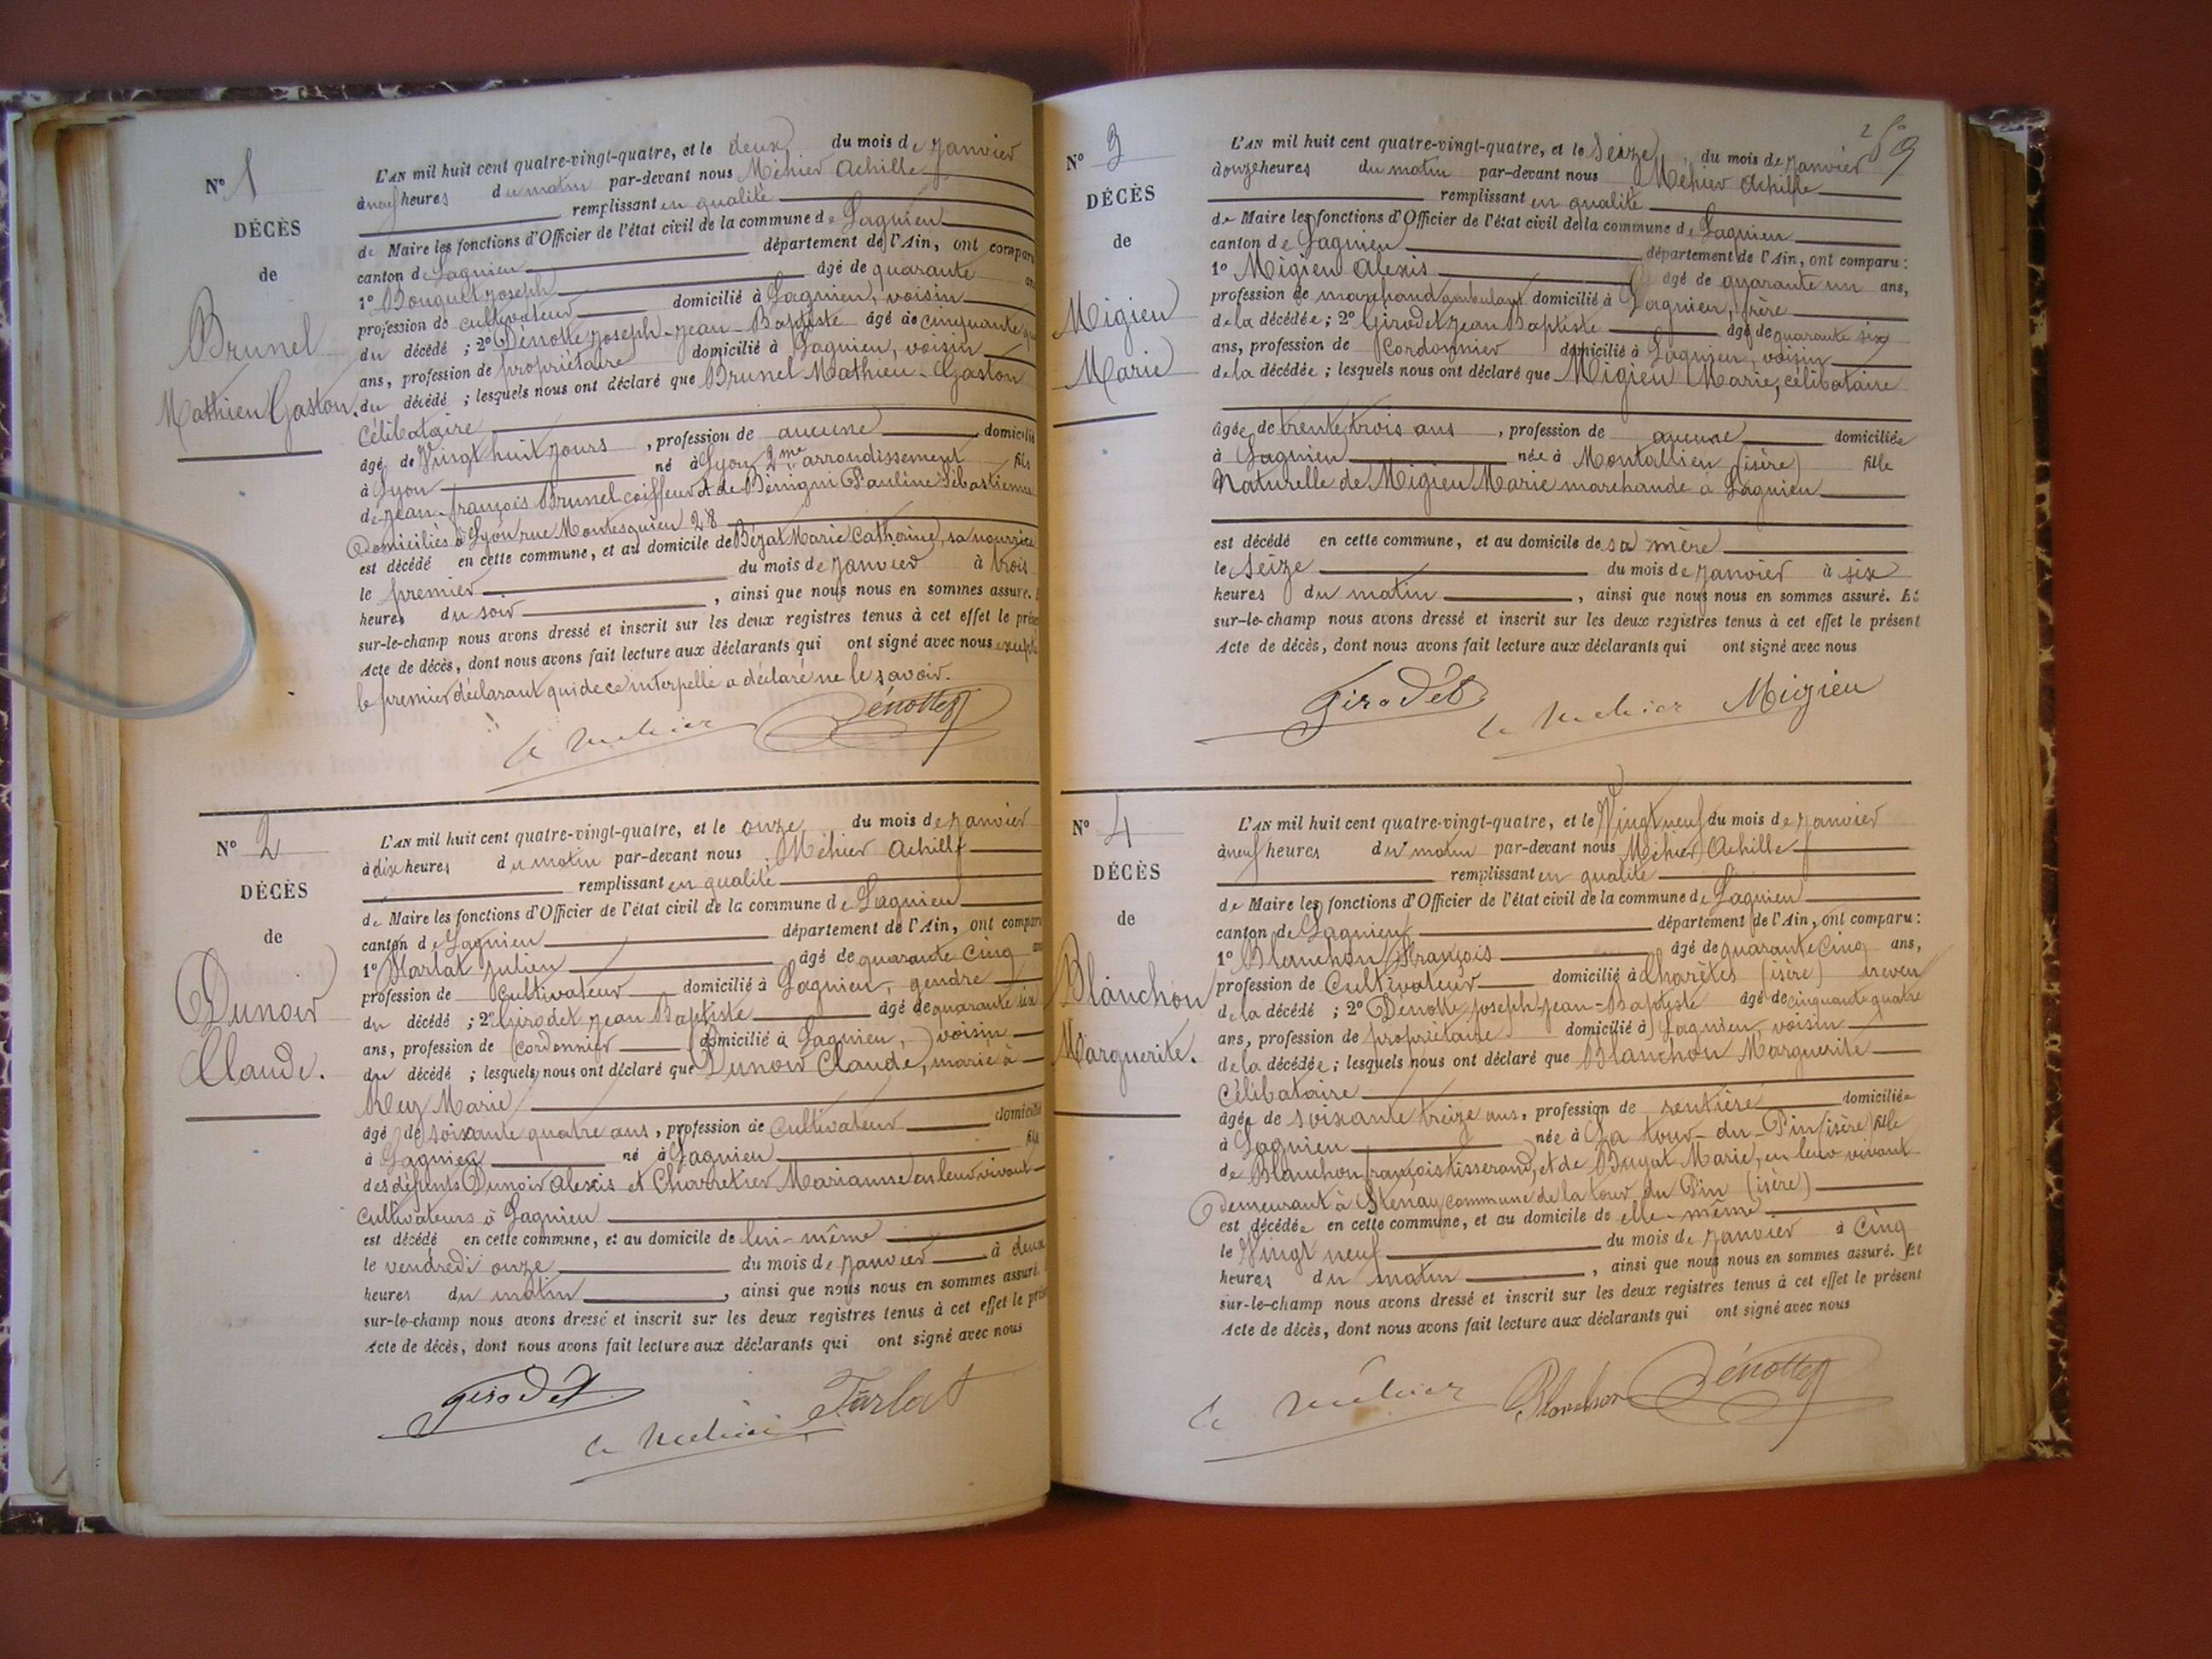 N° 1
DÉCÈS
de
Brunel
Mathieu Gaston.
L'AN mil huit cent quatre-vingt-quatre, et le deux du mois de Janvier
à neuf heures du matin par-devant nous Méhier Achille
remplissant en qualité
de Maire les fonctions d'Officier de l'état civil de la commune de Lagnieu
canton de Lagnieu département de l'Ain, ont comparu
1° Bouquet Joseph âgé de quarante ans
profession de cultivateur domicilié à Lagnieu, voisin
du décédé ; 2° Dénotte Joseph-Jean-Baptiste âgé de cinquante
ans, profession de propriétaire domicilié à Lagnieu, voisin
du décédé ; lesquels nous ont déclaré que Brunel Mathieu-Gaston
Célibataire
âgé de Vingt huit jours, profession de aucune domicilié
à Lyon né à Lyon 2me arrondissement fils
de Jean-François Brunel coiffeur et de Bénigni Pauline Sébastienne
Domiciliés à Lyon rue Montesquieu 28
est décédé en cette commune, et au domicile de Bézat Marie Catherine, sa nourrice
le premier du mois de Janvier à trois
heures du soir, ainsi que nous nous en sommes assuré.
sur-le-champ nous avons dressé et inscrit sur les deux registres tenus à cet effet le présent
Acte de décès, dont nous avons fait lecture aux déclarants qui ont signé avec nous excepté
le premier déclarant qui de ce interpellé a déclaré ne le savoir.
A Méhier Dénotte
N° 2
DÉCÈS
de
Dunoir
Claude.
L'AN mil huit cent quatre-vingt-quatre, et le onze du mois de Janvier
à dix heures du matin par-devant nous Méhier Achille
remplissant en qualité
de Maire les fonctions d'Officier de l'état civil de la commune de Lagnieu
canton de Lagnieu département de l'Ain, ont comparu
1° Tarlat Julien âgé de quarante cinq ans
profession de Cultivateur domicilié à Lagnieu, gendre
du décédé ; 2° Girodet Jean Baptiste âgé de quarante six
ans, profession de Cordonnier domicilié à Lagnieu, voisin
du décédé ; lesquels nous ont déclaré que Dunoir Claude, marié à
Rey Marie
âgé de soixante quatre ans, profession de Cultivateur domicilié
à Lagnieu né à Lagnieu fils
des défunts Dunoir Alexis et Charretier Marianne en leur vivant
Cultivateurs à Lagnieu
est décédé en cette commune, et au domicile de lui-même
le vendredi onze du mois de Janvier à deux
heures du matin, ainsi que nous nous en sommes assuré.
sur-le-champ nous avons dressé et inscrit sur les deux registres tenus à cet effet le présent
Acte de décès, dont nous avons fait lecture aux déclarants qui ont signé avec nous
Girodet A Méhier Tarlat
N° 3
DÉCÈS
de
Migieu
Marie
L'AN mil huit cent quatre-vingt-quatre, et le Seize du mois de Janvier
à onze heures du matin par-devant nous Méhier Achille
remplissant en qualité
de Maire les fonctions d'Officier de l'état civil della commune de Lagnieu
canton de Lagnieu département de l'Ain, ont comparu :
1° Migieu Alexis âgé de quarante un ans,
profession de marchand ambulant domicilié à Lagnieu, frère
de la décédée ; 2° Girodet Jean Baptiste âgé de quarante six
ans, profession de Cordonnier domicilié à Lagnieu, voisin
de la décédée ; lesquels nous ont déclaré que Migieu Marie, célibataire
âgée de trente trois ans, profession de aucune domiciliée
à Lagnieu née à Montallieu (isère) fille
Naturelle de Migieu Marie marchande à Lagnieu
est décédé en cette commune, et au domicile de sa mère
le Seize du mois de Janvier à six
heures du matin, ainsi que nous nous en sommes assuré. Et
sur-le-champ nous avons dressé et inscrit sur les deux registres tenus à cet effet le présent
Acte de décès, dont nous avons fait lecture aux déclarants qui ont signé avec nous
Girodet A Méhier Migieu
N° 4
DÉCÈS
de
Blanchon
Marguerite.
L'AN mil huit cent quatre-vingt-quatre, et le Vingt neuf du mois de Janvier
à neuf heures du matin par-devant nous Méhier Achille
remplissant en qualité
de Maire les fonctions d'Officier de l'état civil de la commune de Lagnieu
canton de Lagnieu département de l'Ain, ont comparu :
1° Blanchon François âgé de quarante cinq ans,
profession de Cultivateur domicilié à Charêtes (isère) neveu
de la décédé ; 2° Dénotte Joseph Jean-Baptiste âgé de cinquante quatre
ans, profession de propriétaire domicilié à Lagnieu, voisin
de la décédée ; lesquels nous ont déclaré que Blanchon Marguerite
Célibataire
âgée de soixante treize ans, profession de rentière domiciliée
à Lagnieu née à La tour-du-Pin (isère) fille
de Blanchon françois tisserand, et de Bayat Marie, en leur vivant
Demeurant à Stenay commune de la tour du Pin (isère)
est décédée en cette commune, et au domicile de elle-même
le Vingt neuf du mois de Janvier à Cinq
heures du matin, ainsi que nous nous en sommes assuré. Et
sur-le-champ nous avons dressé et inscrit sur les deux registres tenus à cet effet le présent
Acte de décès, dont nous avons fait lecture aux déclarants qui ont signé avec nous
A Méhier Blanchon Dénotte